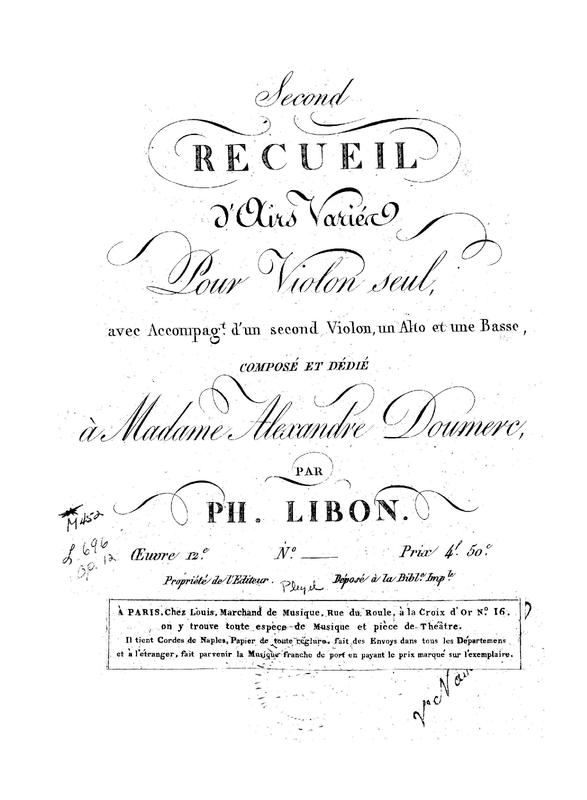 Second
RECUEIL
d'Airs Variés
Pour Violon seul,
avec Accompagt. d'un second Violon, un Alto et une Basse,
COMPOSÉ ET DÉDIÉ
à Madame Alexandre Doumerc,
PAR
PH. LIBON.
M452
L 696
Op. 12
Œuvre 12e. No. ___ Prix 4f. 50c.
Propriété de l'Editeur. Pleyel Déposé à la Bibl. Imple.
À PARIS, Chez Louis, Marchand de Musique, Rue du Roule, à la Croix d'Or No. 16.
on y trouve toute espèce de Musique et pièce de Théâtre.
Il tient Cordes de Naples, Papier de toute réglure, fait des Envois dans tous les Départemens
et à l'étranger, fait parvenir la Musique franche de port en payant le prix marqué sur l'exemplaire.